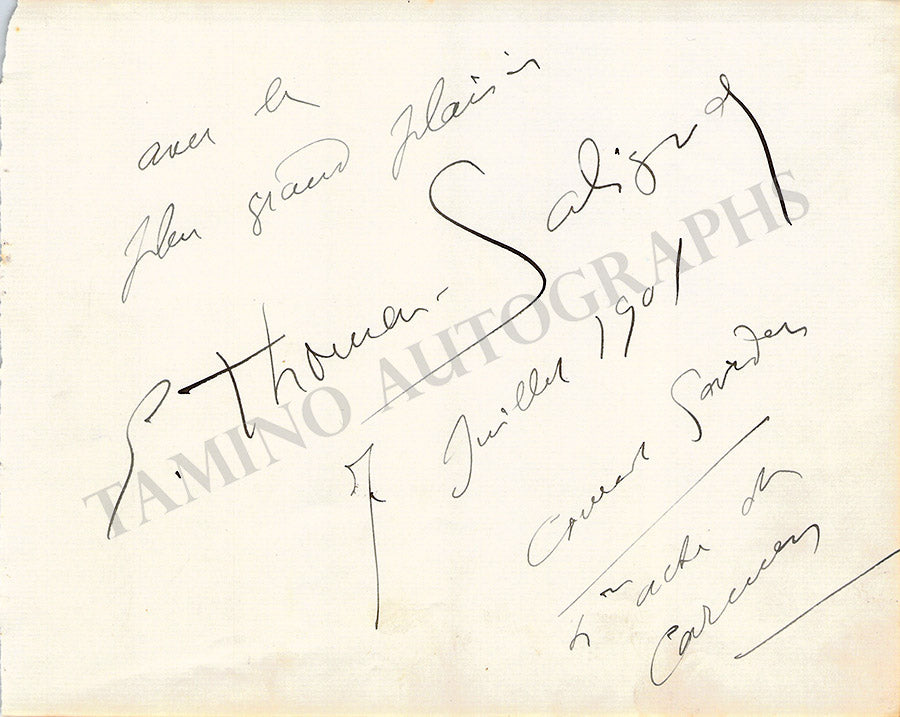 avec le
plus grand plaisir
E. Thomas-Salignac
7 Juillet 1901
Covent Garden
4me acte de
Carmen
TAMINO AUTOGRAPHS